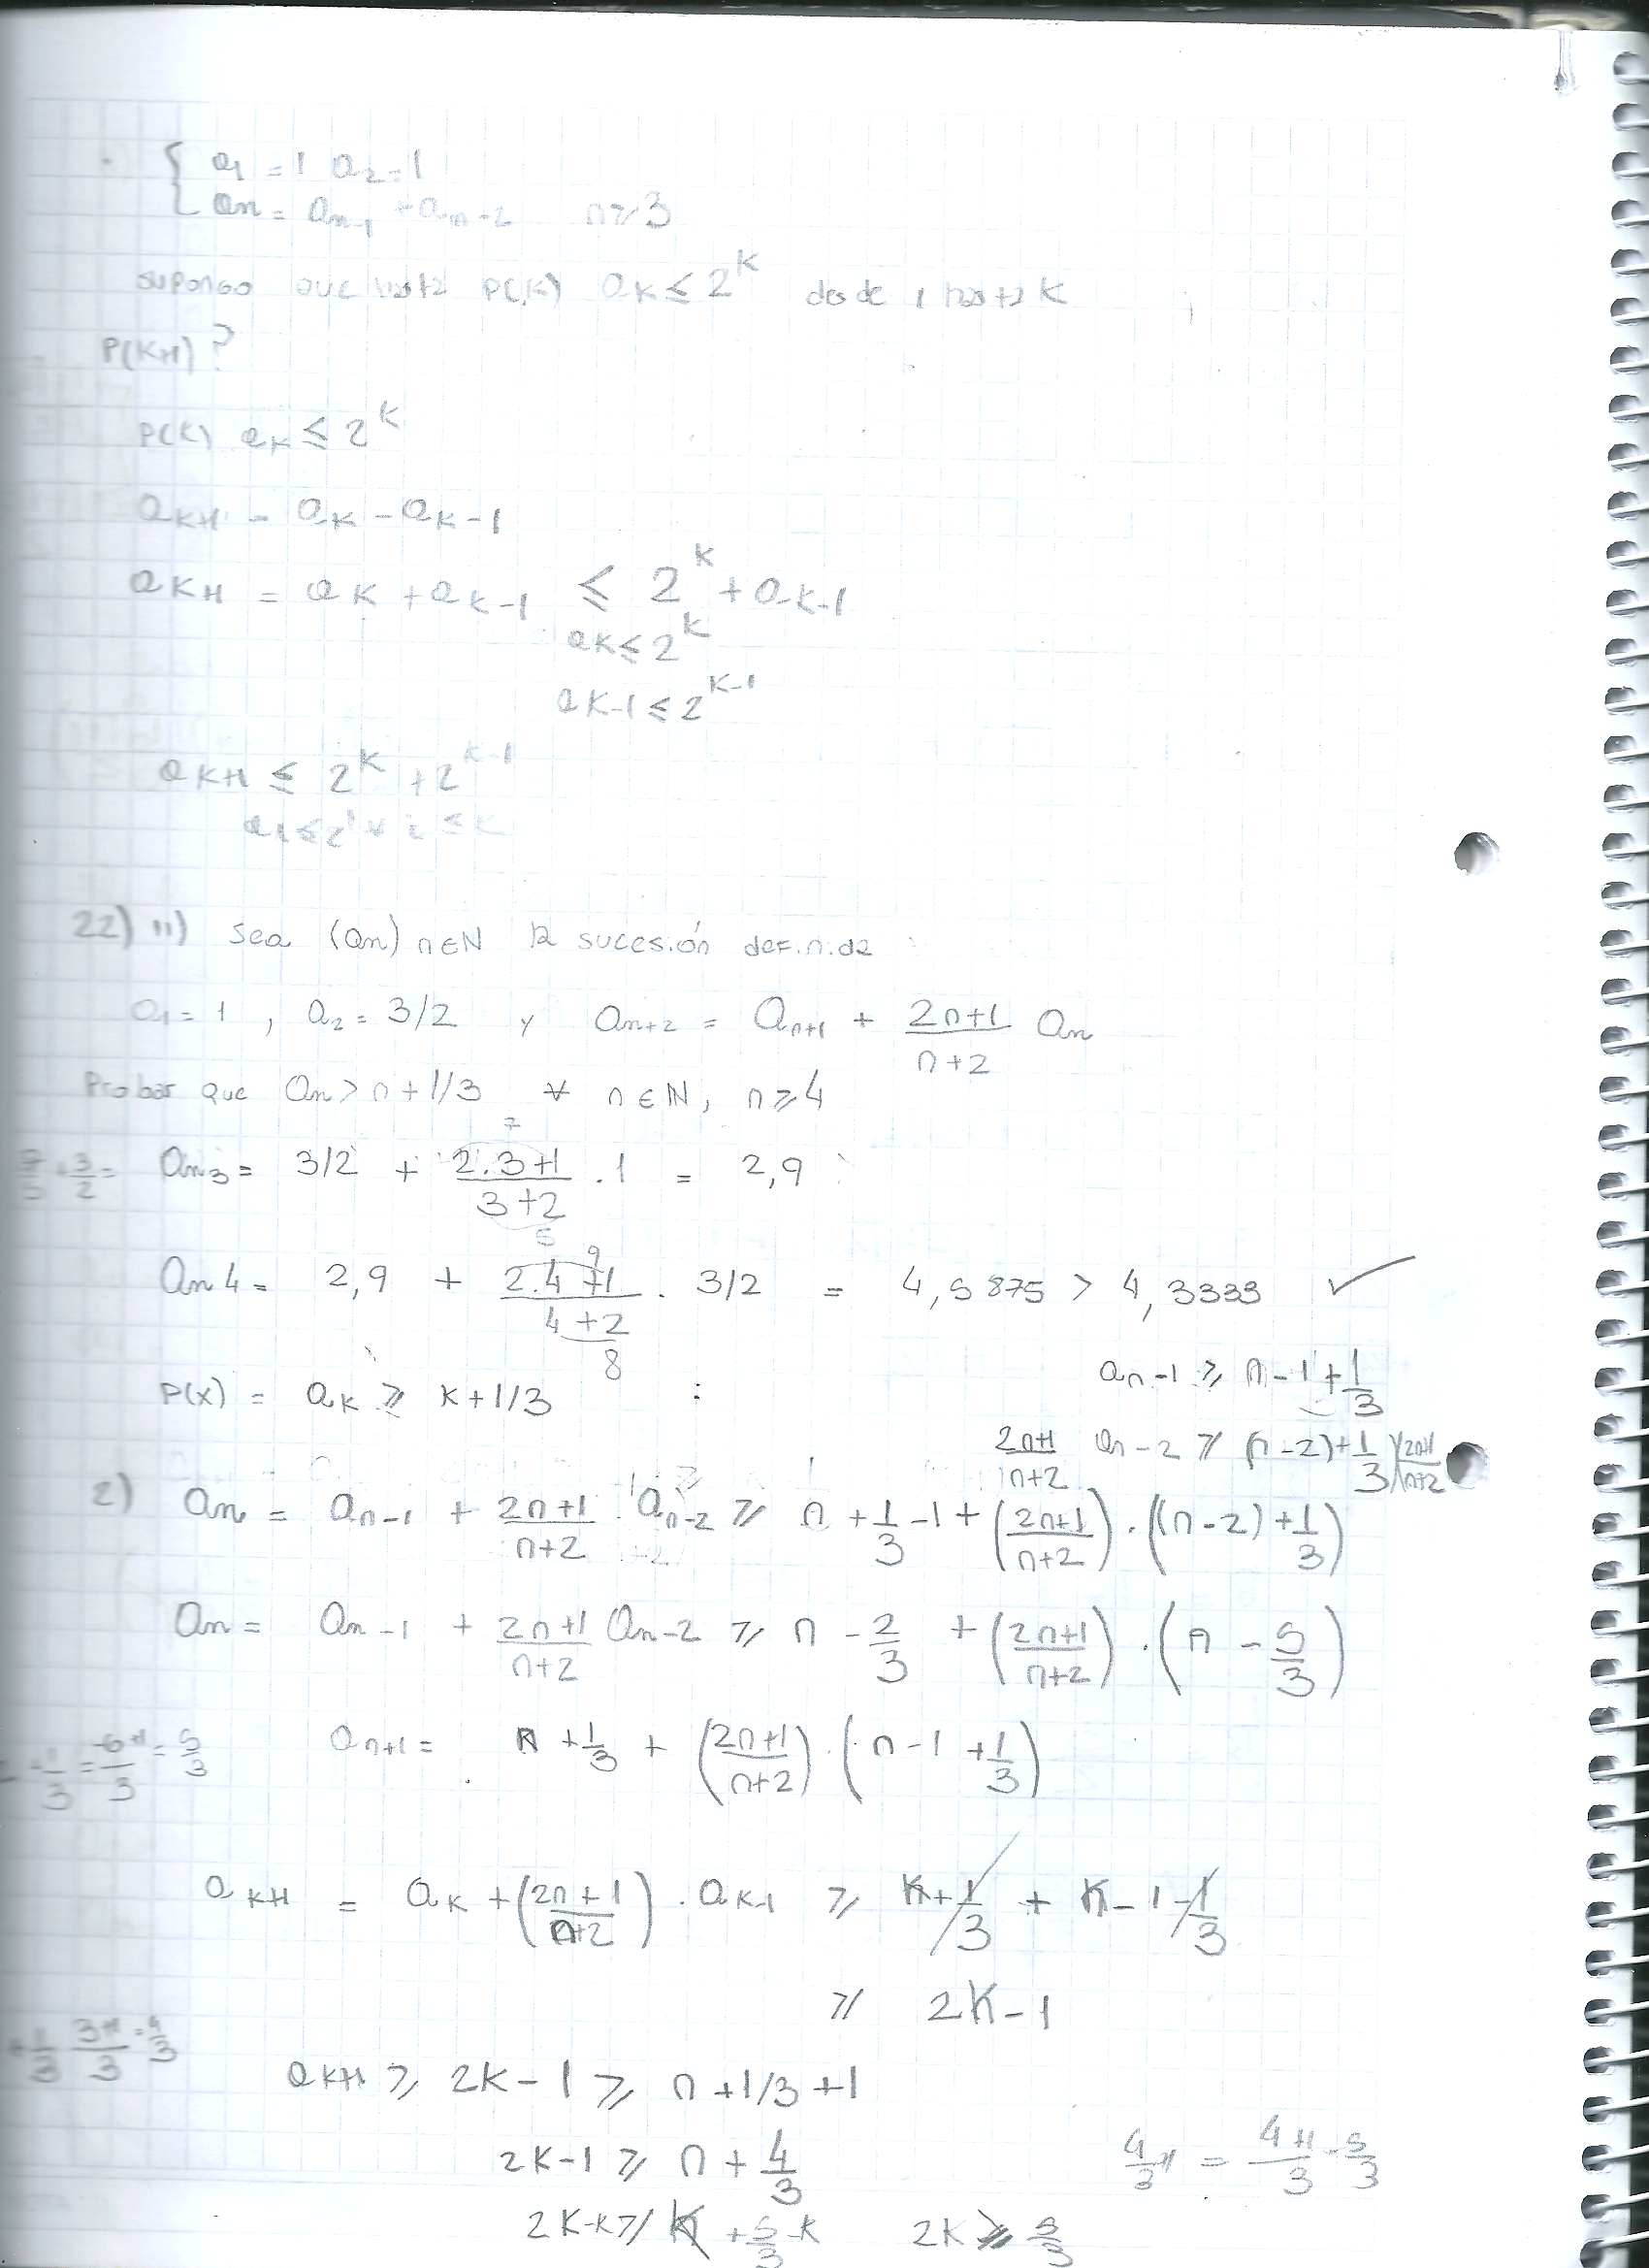 { a₁ = 1 a₂ = 1
aₙ = aₙ₋₁ + aₙ₋₂ n ≥ 3
supongo que hasta P(K) aₖ ≤ 2^K desde 1 hasta K
P(K+1)?
P(K) aₖ ≤ 2^K
aₖ₊₁ = aₖ - aₖ₋₁
aₖ₊₁ = aₖ + aₖ₋₁ ≤ 2^K + aₖ₋₁
aₖ ≤ 2^K
aₖ₋₁ ≤ 2^(K-1)
aₖ₊₁ ≤ 2^K + 2^(K-1)
aᵢ ≤ 2^i ∀ i ≤ K
22) ii) Sea (aₙ) n∈ℕ la sucesión definida
a₁ = 1 , a₂ = 3/2 y aₙ₊₂ = aₙ₊₁ + (2n+1)/(n+2) aₙ
Probar que aₙ > n + 1/3 ∀ n ∈ ℕ, n ≥ 4
7
7/5 + 3/2 = an₃ = 3/2 + (2.3+1)/(3+2) . 1 = 2,9
5
9
an 4 = 2,9 + (2.4+1)/(4+2) . 3/2 = 4,5875 > 4,3333 ✓
8
aₙ₋₁ ≥ n - 1 + 1/3
P(x) = aₖ ≥ K + 1/3 :
(2n+1)/(n+2) aₙ₋₂ ≥ (n-2) + 1/3 )(2n+1)/(n+2)
2) aₙ = aₙ₋₁ + (2n+1)/(n+2) aₙ₋₂ ≥ n + 1/3 - 1 + ((2n+1)/(n+2)) . ((n-2) + 1/3)
aₙ = aₙ₋₁ + (2n+1)/(n+2) aₙ₋₂ ≥ n - 2/3 + ((2n+1)/(n+2)) . (n - 5/3)
1/3 = (-6+1)/3 = 5/3 aₙ₊₁ = n + 1/3 + ((2n+1)/(n+2)) . (n - 1 + 1/3)
aₖ₊₁ = aₖ + ((2n+1)/(n+2)) . aₖ₋₁ ≥ K + 1/3 + K - 1 - 1/3
≥ 2K - 1
+ 1/3 (3+1)/3 = 4/3
aₖ₊₁ ≥ 2K - 1 ≥ n + 1/3 + 1
2K - 1 ≥ n + 4/3
4/3 +1 = (4+1)/3 = 5/3
2K - K ≥ K + 5/3 - K 2K ≥ 5/3